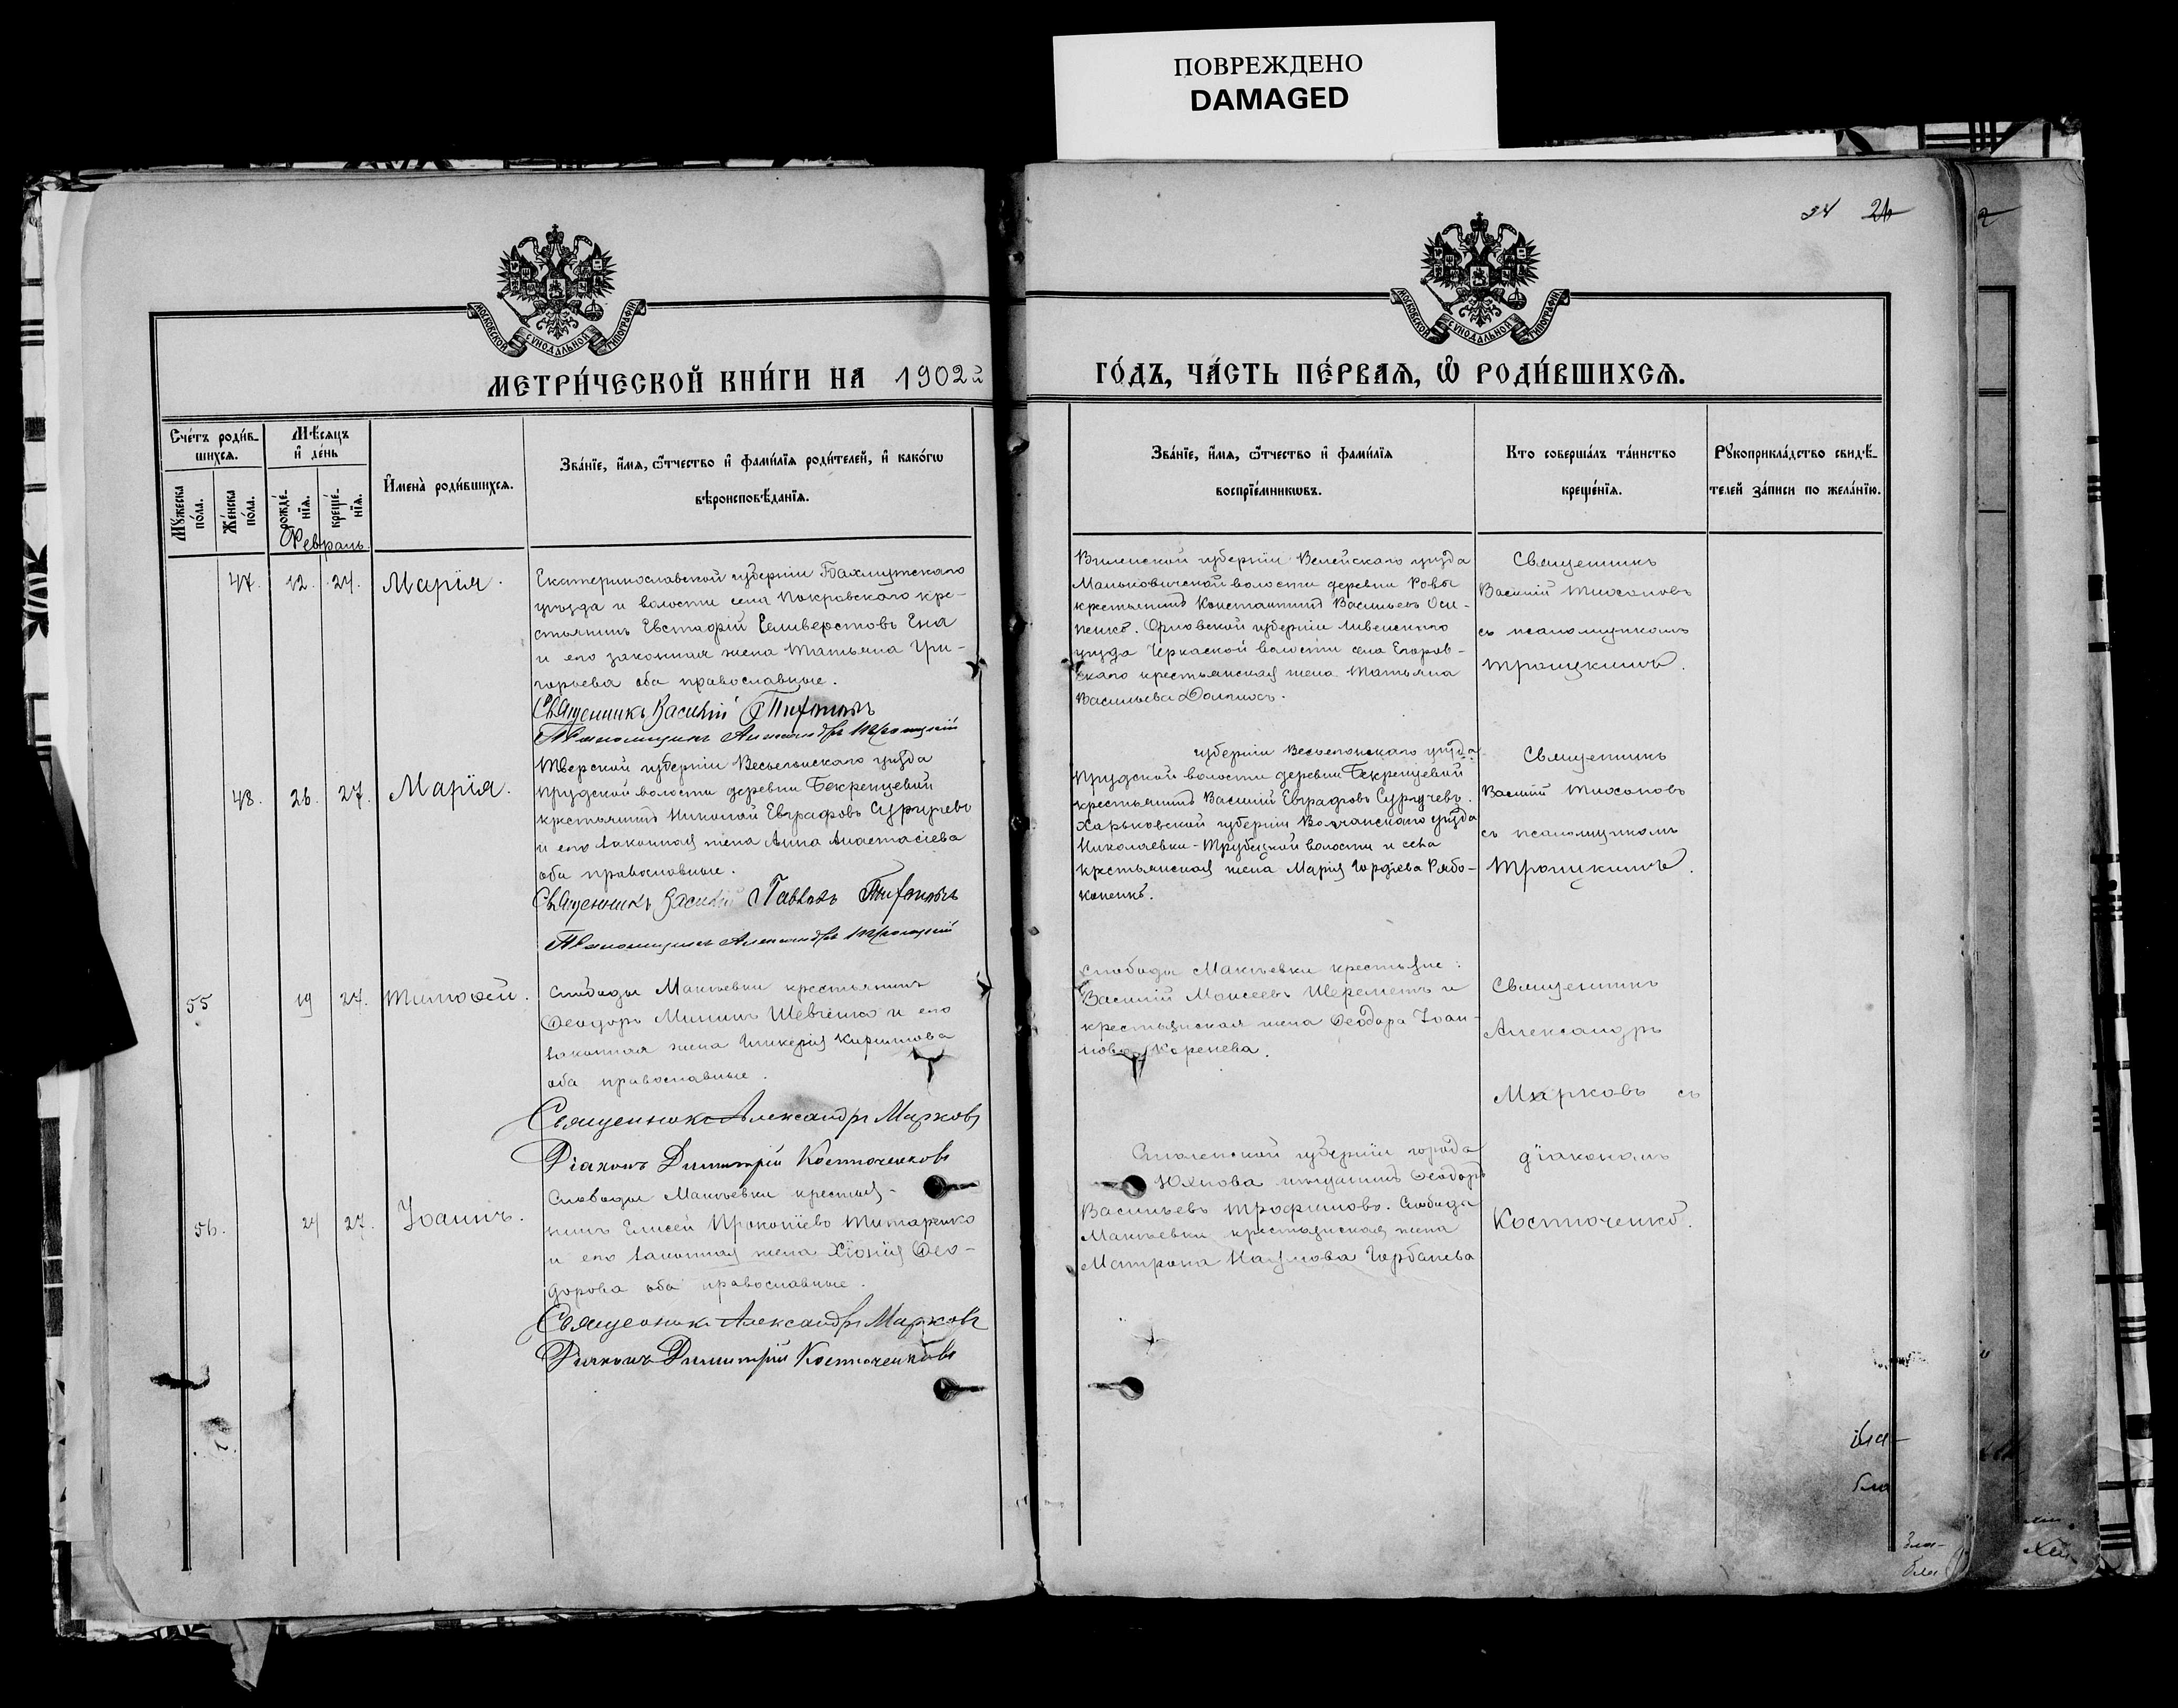 ПОВРЕЖДЕНО
DAMAGED
34 26
МОСКОВСКОЙ СѴНОДАЛЬНОЙ ТИПОГРАФІИ
МОСКОВСКОЙ СѴНОДАЛЬНОЙ ТИПОГРАФІИ
МЕТРИ́ЧЕСКОЙ КНИ́ГИ НА 1902й
ГО́ДЪ, ЧА́СТЬ ПЕ́РВАѦ, Ѽ РОДИ́ВШИХСѦ.
Сче́тъ роди́в-
шихсѧ.
Мѣ́сѧцъ
и҆ де́нь
Мꙋ́жеска
по́ла.
Же́нска
по́ла.
рожде́-
нїѧ.
креще́-
нїѧ.
И҆мена̀ роди́вшихсѧ.
Зва́нїе, и҆́мѧ, ѻ҆́тчество и҆ фами́лїѧ роди́телей, и҆ како́гѡ
вѣроисповѣ́данїѧ.
Зва́нїе, и҆́мѧ, ѻ҆́тчество и҆ фами́лїѧ
воспрїе́мникѡвъ.
Кто соверша́лъ та́инство
креще́нїѧ.
Рꙋкоприкла́дство свидѣ́-
телей за́писи по жела́нїю.
Февраль.
47. 12. 27. Марія.
Екатеринославской губерніи Бахмутскаго
уѣзда и волости села Покровскаго кре-
стьянинъ Евстафій Селиверстовъ Ена
и его законная жена Татьяна Гри-
горьева оба православные.
Священникъ Василій Тихоновъ
Псаломщикъ Александръ Троицкій
Виленской губерніи Велейскаго уѣзда
Маньковичской волости деревни Ровы
крестьянинъ Константинъ Васильевъ Оси-
пенко. Орловской губерніи Ливенскаго
уѣзда Черкаской волости села Егоров-
скаго крестьянская жена Татьяна
Васильева
Священникъ
Василій Тихоновъ
съ псаломщикомъ
48. 26. 27. Марія.
Тверской губерніи Весьегонскаго уѣзда
Прудской волости деревни Бекренцевой
крестьянинъ Николай Евграфовъ Сургучевъ
и его законная жена Анна Анастасіева
оба православные.
Священникъ Василій Павловъ Тихоновъ
Псаломщикъ Александръ Троицкій
губерніи Весьегонскаго уѣзда
Прудской волости деревни Бекренцевой
крестьянинъ Василій Евграфовъ Сургучевъ.
Харьковской губерніи Волчанскаго уѣзда
Николаевки-Трубецкой волости и села
крестьянская жена Марія Гордіева Рябо-
коненко.
Священникъ
Василій Тихоновъ
съ псаломщикомъ
55 19 27. Тимофей.
Слободы Макѣевки крестьянинъ
Ѳеодоръ Мининъ Шевченко и его
законная жена Гликерія Кириллова
оба православные.
Священникъ Александръ Марковъ
Діаконъ Димитрій Костюченковъ
Слободы Макѣевки крестьяне:
Василій Моисеевъ Шереметъ и
крестьянская жена Ѳеодора Іоан-
нова Коренева.
Священникъ
Александръ
Марковъ съ
діакономъ
Костюченко.
56. 24 27. Іоаннъ.
Слободы Макѣевки крестья-
нинъ Елисей Прокопіевъ Титаренко
и его законная жена Хіонія Ѳео-
дорова оба православные.
Священникъ Александръ Марковъ
Діаконъ Димитрій Костюченковъ
Смоленской губерніи города
Юхнова мѣщанинъ Ѳеодоръ
Васильевъ Трофимовъ. Слободы
Макѣевки крестьянская жена
Матрона Наумова Горбанева